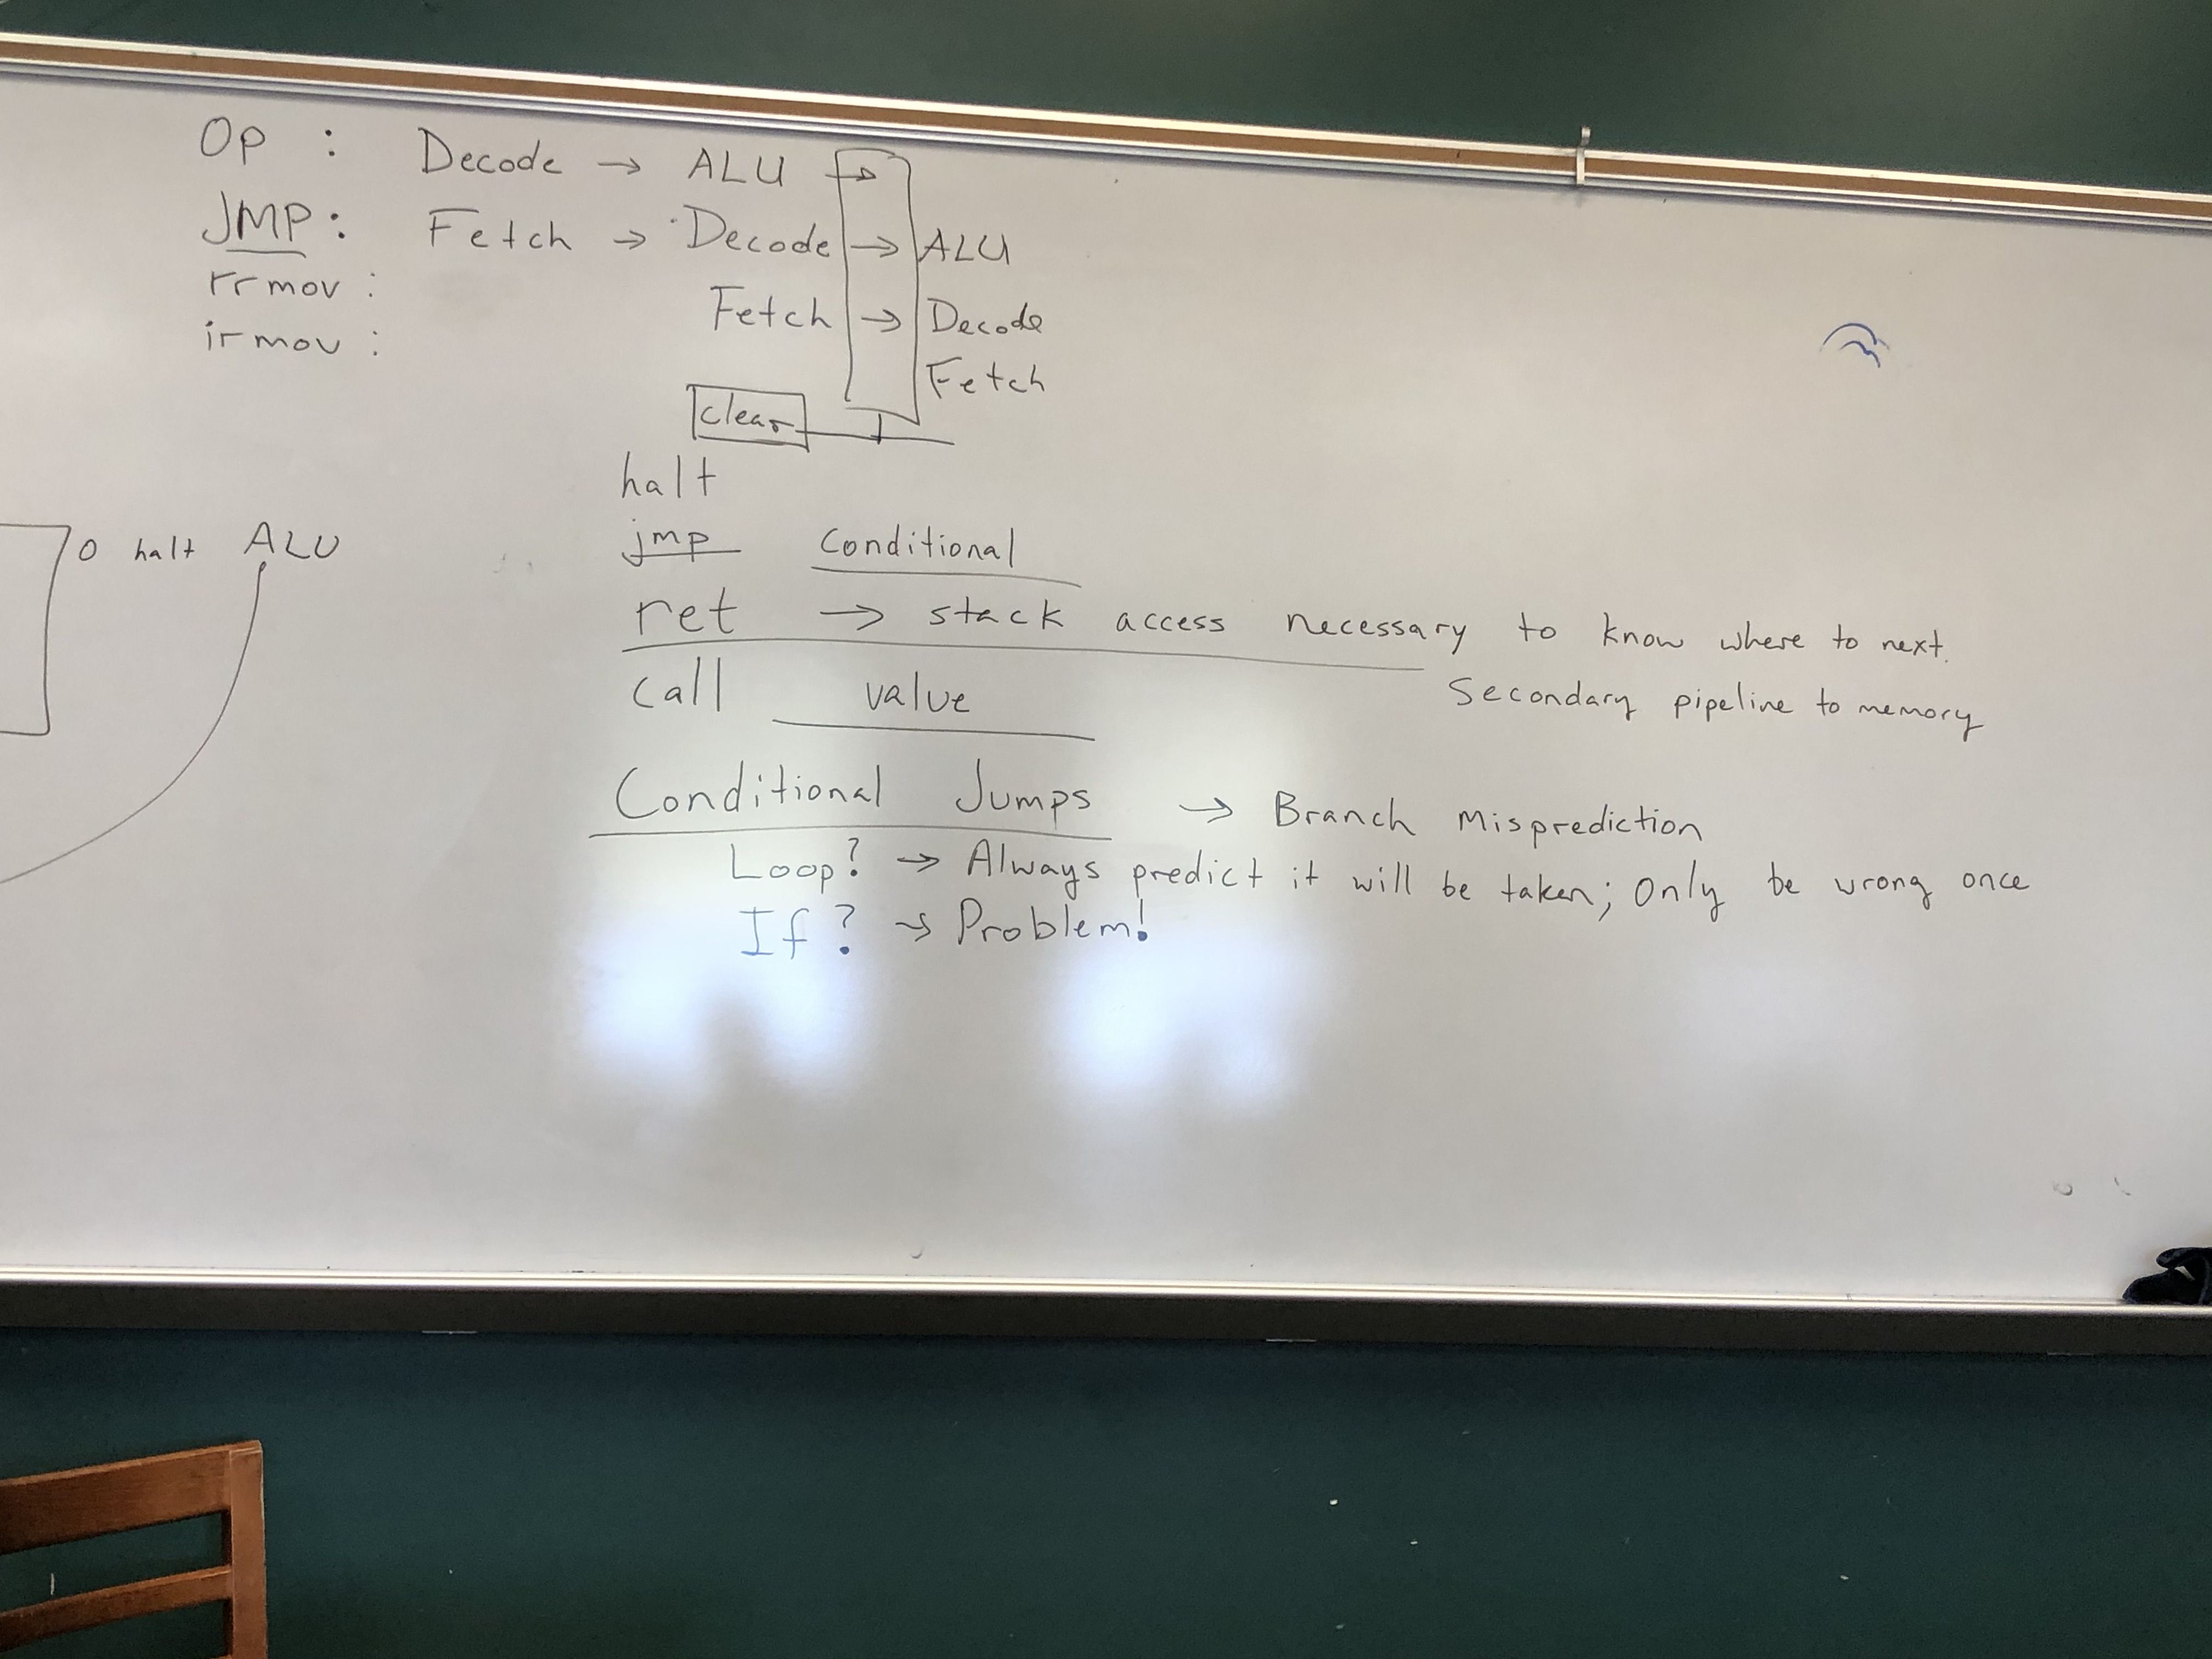 Op : Decode → ALU →
JMP: Fetch → Decode → ALU
rrmov : Fetch → Decode
irmov : Fetch
clear
halt
0 halt ALU
jmp conditional
ret → stack access necessary to know where to next.
call value
Secondary pipeline to memory
Conditional Jumps → Branch Misprediction
Loop? → Always predict it will be taken; Only be wrong once
If? → Problem!